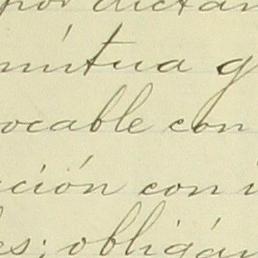 por dictá
mútua g
ocable con
ción con i
es; obligán